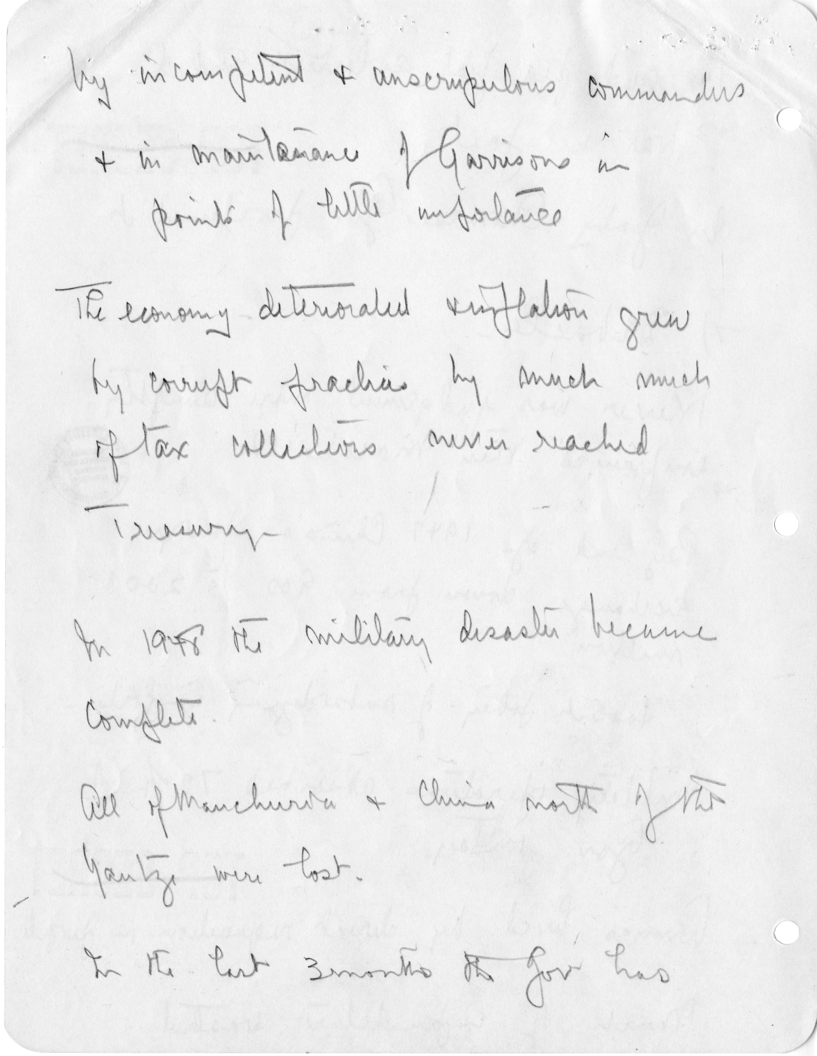 by incompetent & unscrupulous commanders
& in maintainance of Garrisons in
points of little importance
The economy deteriorated & inflation grew
by corrupt practices by much much
of tax collections never reached
Treasury -
In 1948 the military disaster became
complete.
All of Manchuria & China north of the
Yantze were lost.
In the last 3 months the Gov has